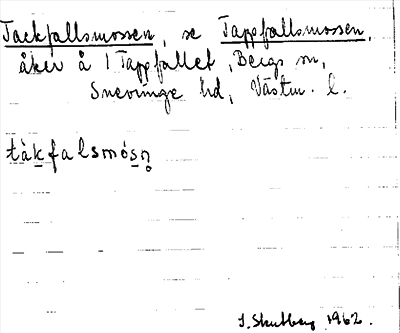 Tackfallsmossen, se Tappfallsmossen,
åker å 1 Tappfallet, Bergs sn,
Snevringe hd, Västm. l.
tàkfalsmósn̥
1962.